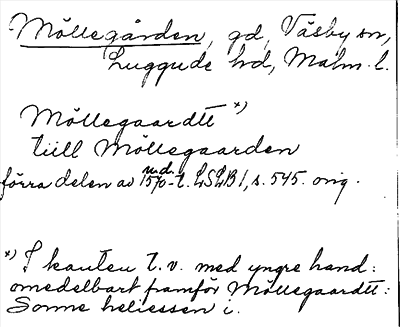 Möllegården, gd, Väsby sn,
Luggude hd, Malm. l.
Möllegaardtt *)
tiill Möllegaarden
förra delen av m.d. 1570-t. LSLB 1, s. 545. orig.
*) I kanten t.v. med yngre hand:
omedelbart framför Möllegaardtt:
Somme heliessen i.